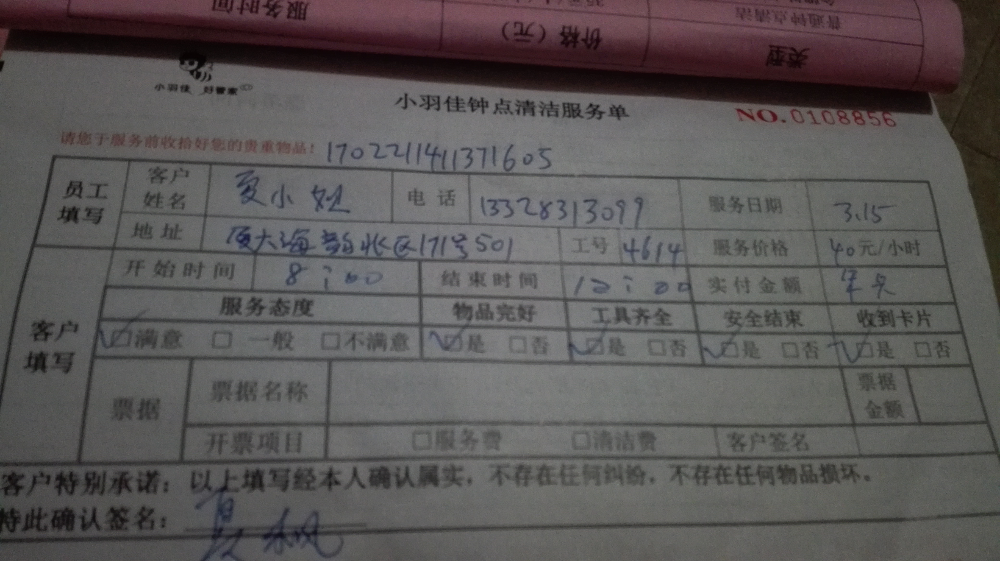 服务时间
价格（元）
类型
普通钟点清洁
小羽佳 好管家
小羽佳钟点清洁服务单
NO.0108856
请您于服务前收拾好您的贵重物品！ 1702211411371605
员工填写 客户姓名 夏小姐 电话 13328313099 服务日期 3.15
地址 厦大海韵北区171号501 工号 4614 服务价格 40元/小时
客户填写 开始时间 8:00 结束时间 12:00 实付金额
服务态度 物品完好 工具齐全 安全结束 收到卡片
☑满意 □一般 □不满意 ☑是 □否 ☑是 □否 ☑是 □否 ☑是 □否
票据 票据名称 票据金额
开票项目 □服务费 □清洁费 客户签名
客户特别承诺：以上填写经本人确认属实，不存在任何纠纷，不存在任何物品损坏。
特此确认签名：夏